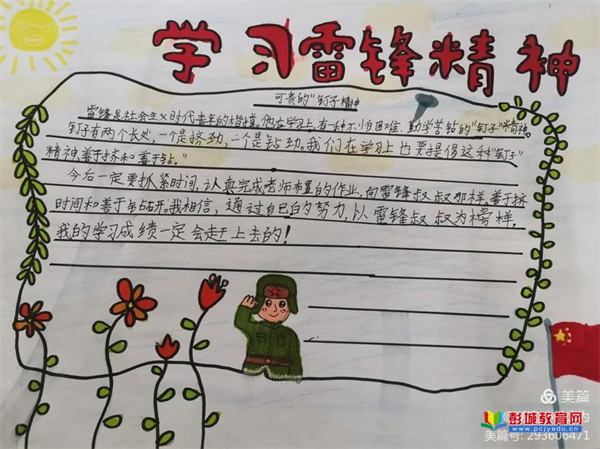 学习雷锋精神
可贵的“钉子精神
雷锋是社会主义时代青年的楷模,他在学习上,有一种不怕困难、勤学苦钻的“钉子”精神。
钉子有两个长处,一个是挤劲,一个是钻劲。我们在学习上也要提倡这种“钉子”
精神,善于挤和善于钻。”
今后一定要抓紧时间,认真完成老师布置的作业,向雷锋叔叔那样,善于挤
时间和善于钻研。我相信,通过自己的努力,以雷锋叔叔为榜样,
我的学习成绩一定会赶上去的!
美篇
彭城教育网
www.pcjyedu.cn
美篇号: 293606471